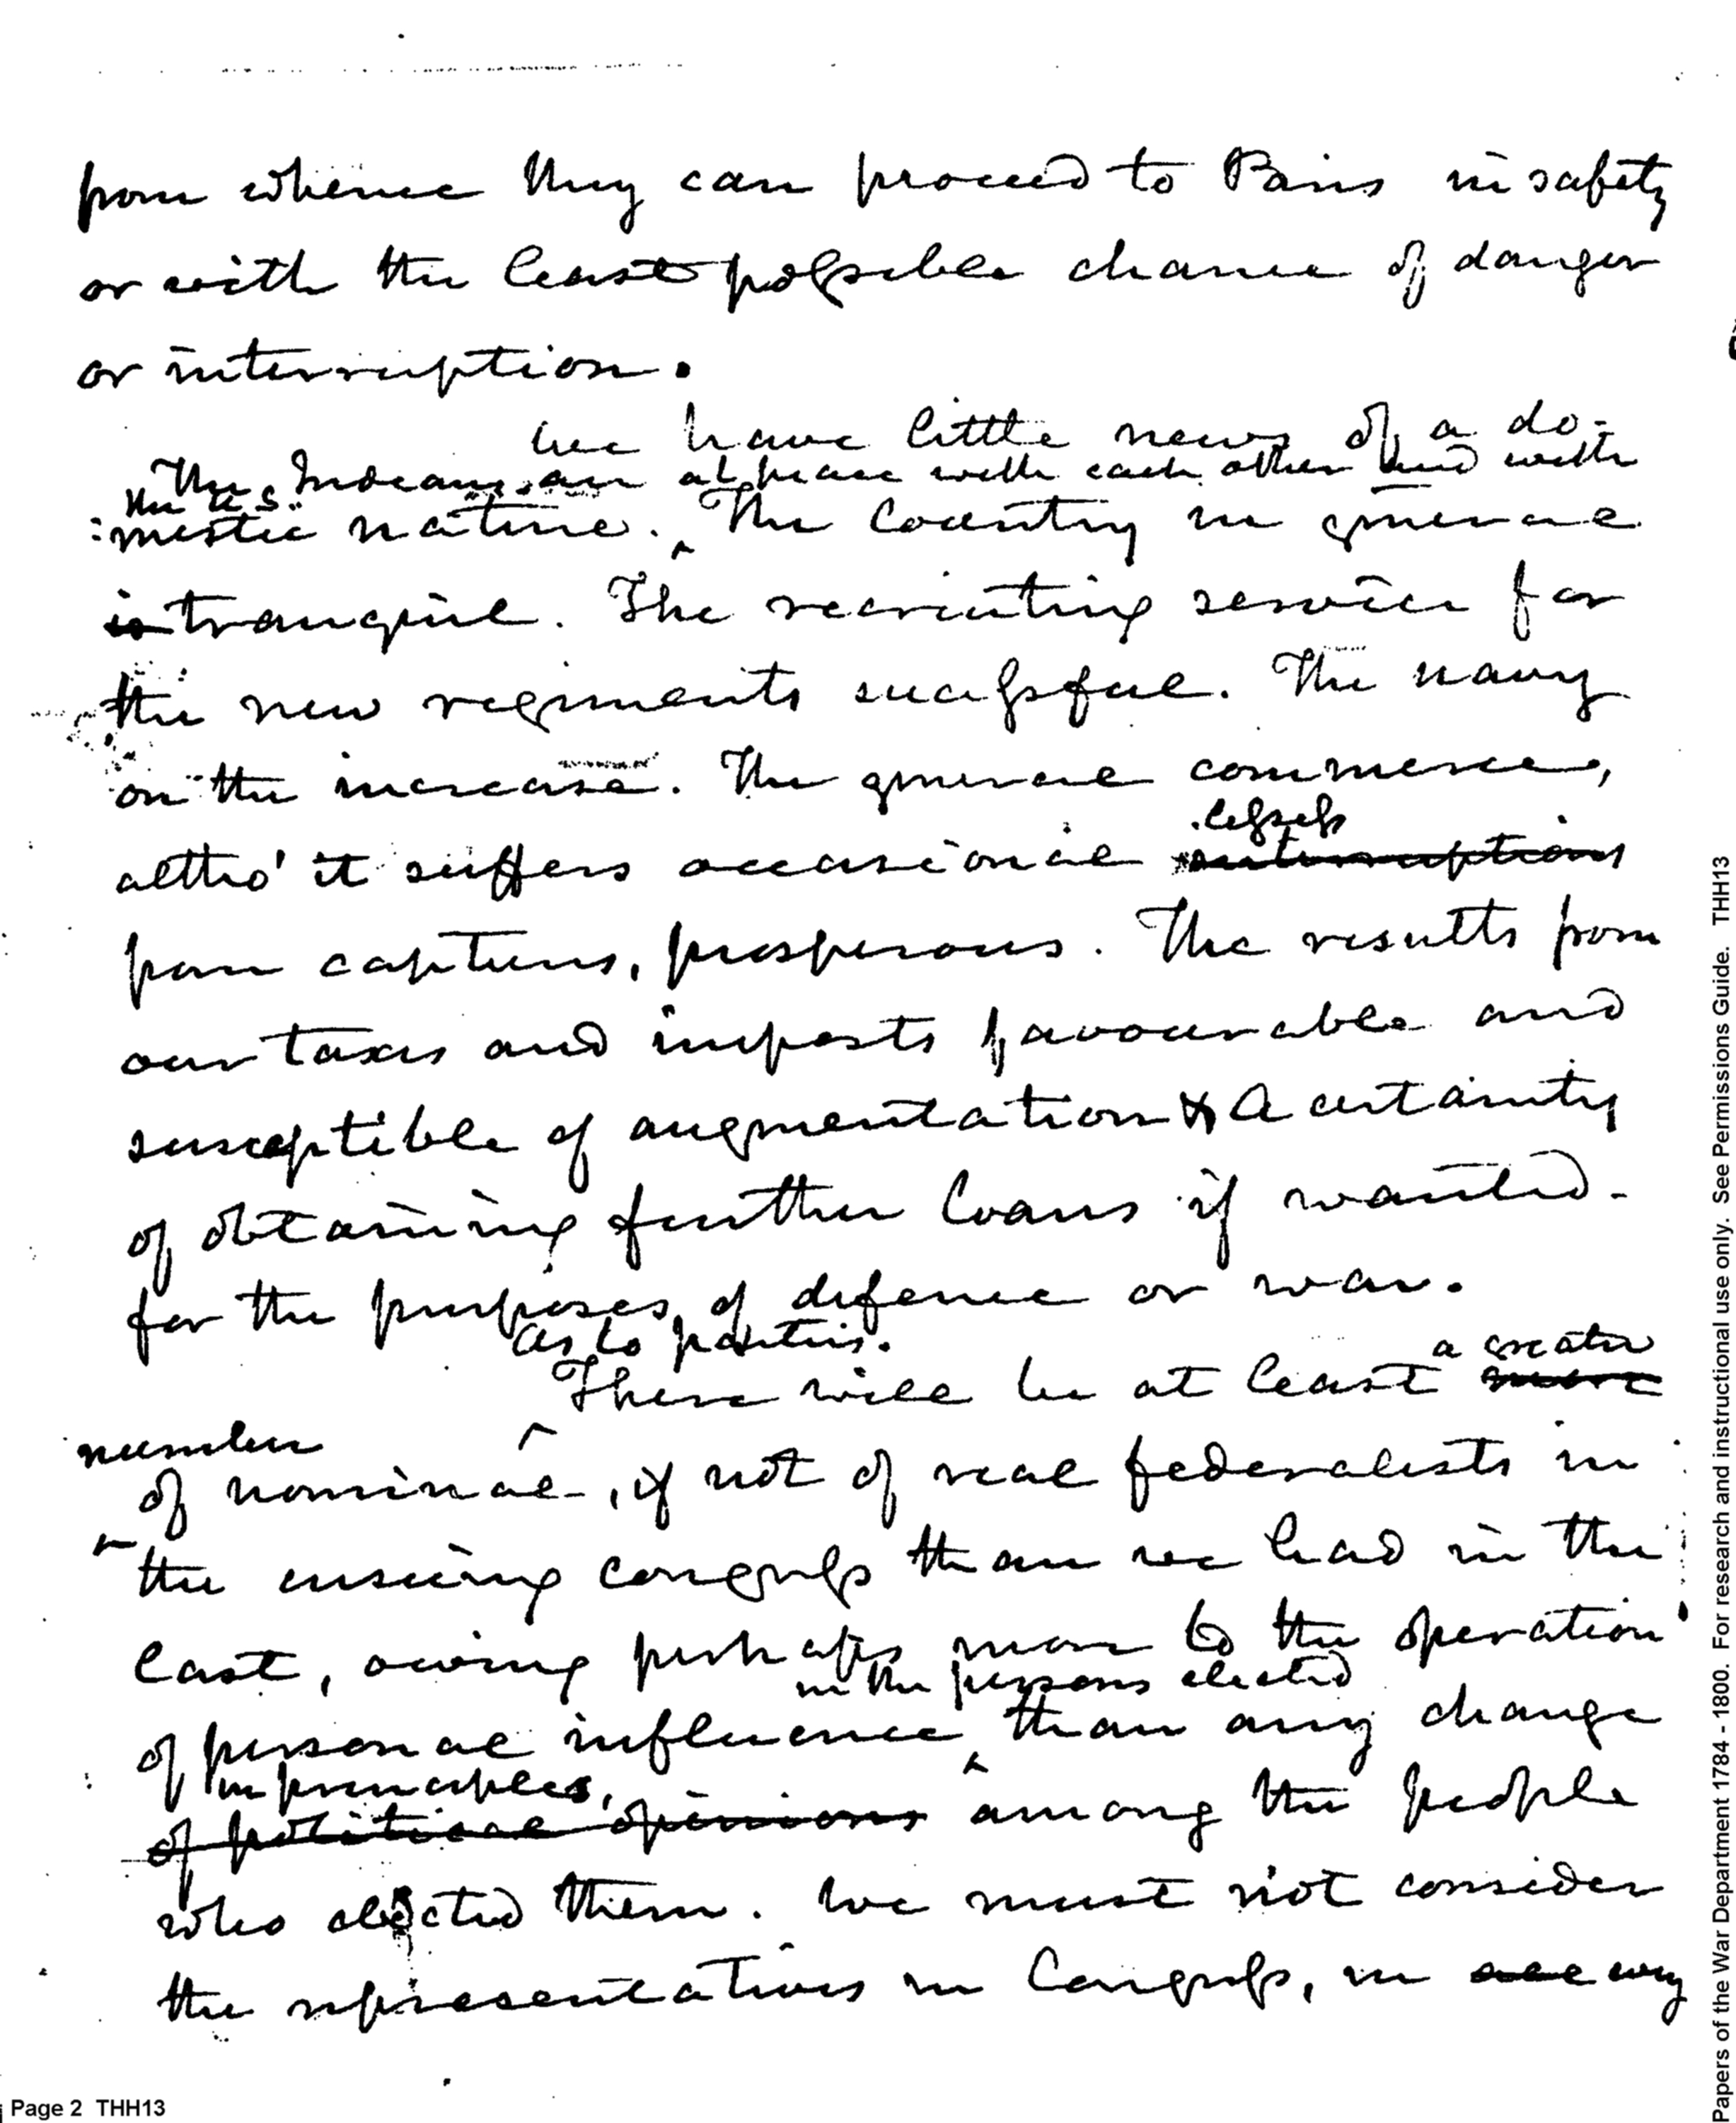 from whence they can proceed to Paris in safety
or with the least possible chance of danger
or interruption.
We have little news of a do-
The Indians are at peace with each other and with
the U.S.
:mestic nature. ^ The Country in general
is tranquil. The recruiting service for
the new regiments successful. The navy
on the increase. The general commerce,
altho' it suffers occasional interruptions
losses
from captures, prosperous. The results from
our taxes and imposts favourable and
susceptible of augmentation & A certainty
of obtaining further loans if wanted-
for the purposes of defence or war.
As to parties.
a greater
There will be at least more
number
of nominal-, if not of real federalists in
the ensuing congress than we had in the
last, owing perhaps more to the operation
in the persons elected
of personal influence ^ than any change
in principles,
of political opinions among the people
who elected them. We must not consider
the representatives in Congress, in all every
Page 2 THH13
Papers of the War Department 1784 - 1800. For research and instructional use only. See Permissions Guide. THH13